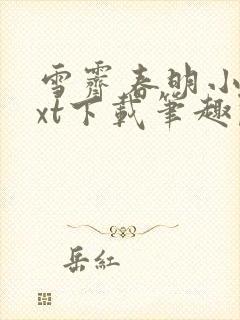 雪霽春明小
xt下載筆趣
岳紅